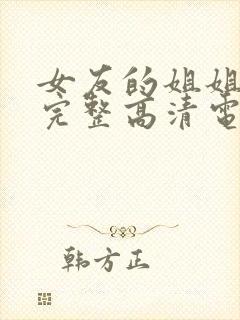 女友的姐姐
完整高清电
韩方正